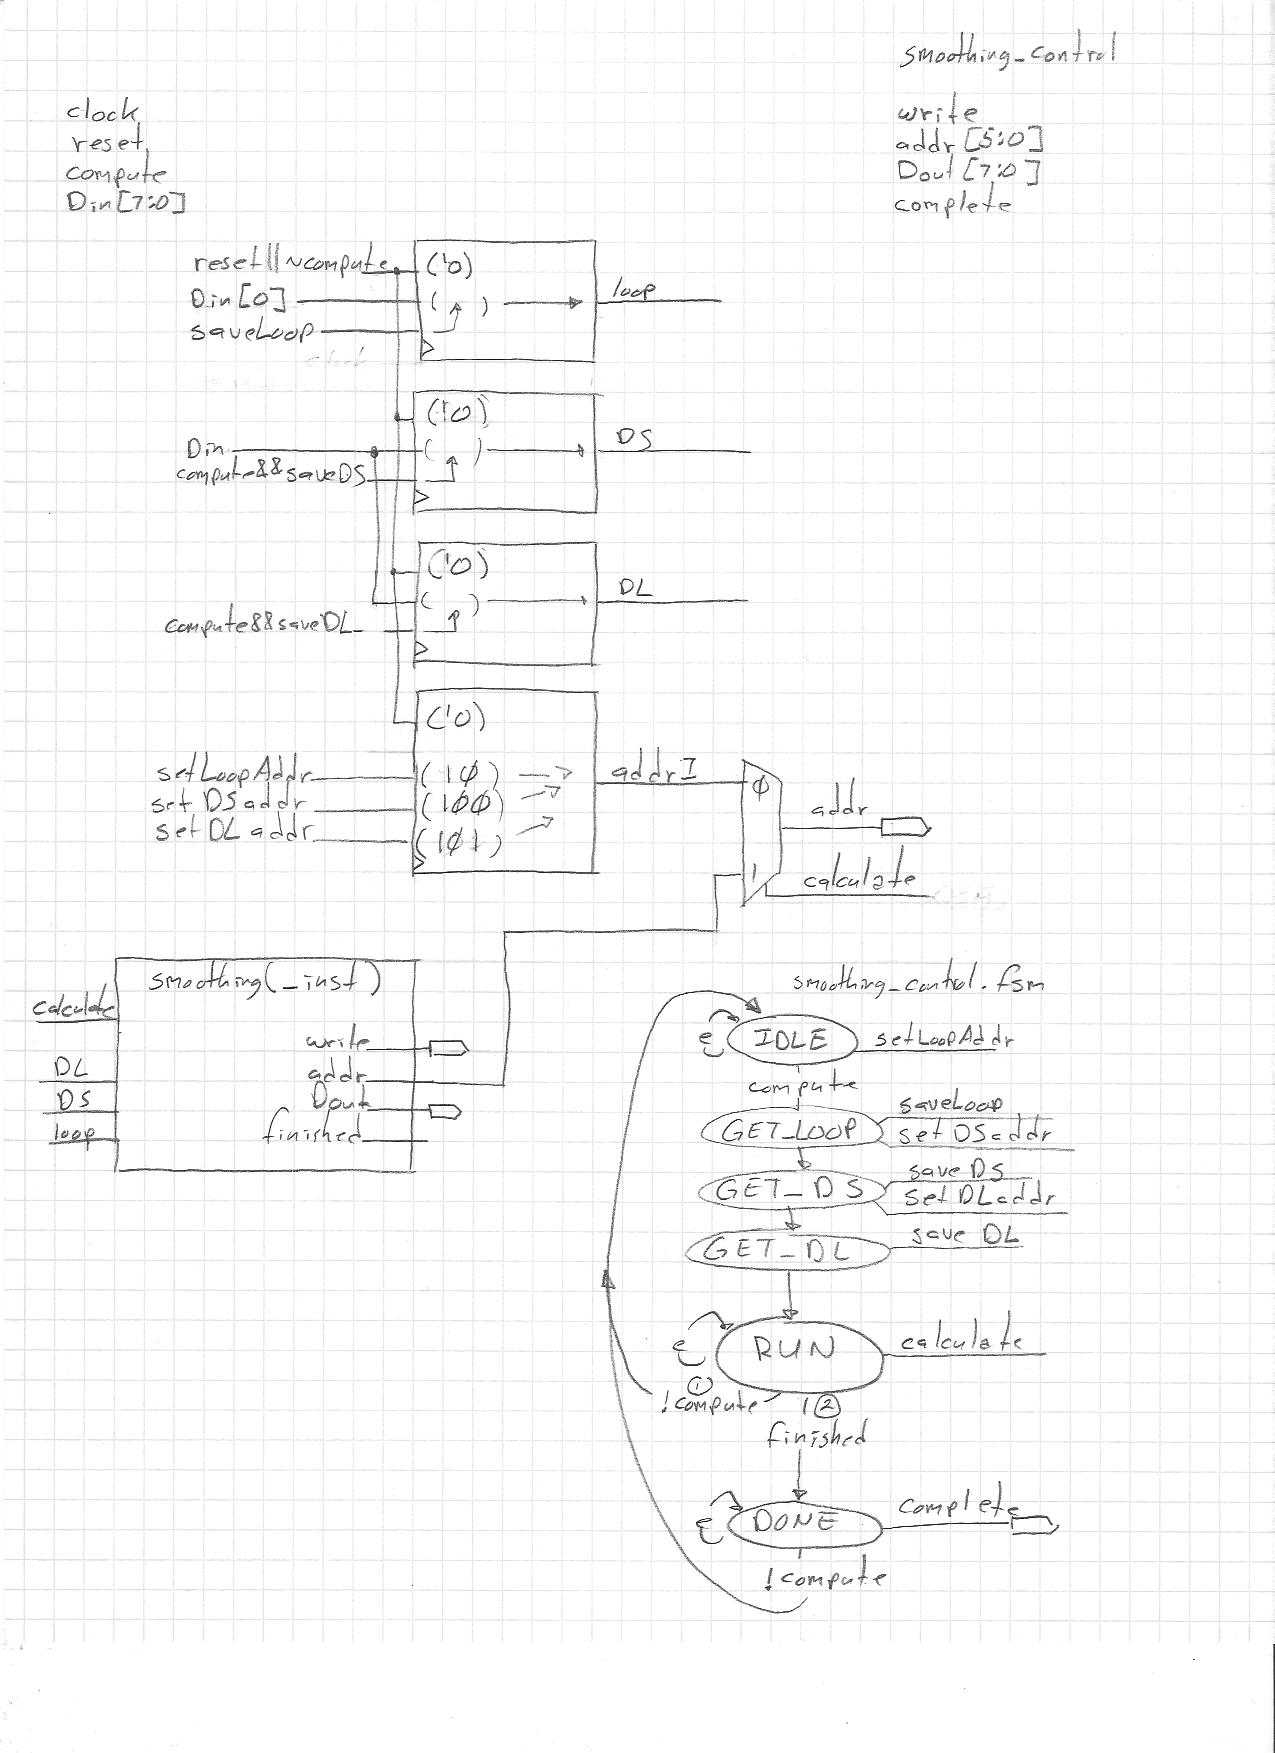 smoothing_control
clock
reset
compute
Din[7:0]
write
addr[5:0]
Dout[7:0]
complete
reset||~compute
('0)
Din[0]
( )
loop
saveLoop
('0)
Din
( )
DS
compute&&saveDS
('0)
( )
DL
compute&&saveDL
('0)
setLoopAddr
(1φ)
addrI
φ
set DSaddr
(1φφ)
addr
set DL addr
(1φ1)
1
calculate
smoothing(_inst)
calculate
write
DL
addr
DS
Dout
loop
finished
smoothing_control.fsm
ε
IDLE
setLoopAddr
compute
GET_LOOP
saveLoop
set DSaddr
GET_DS
save DS
set DLaddr
GET_DL
save DL
ε
RUN
calculate
①
!compute
②
finished
ε
DONE
complete
!compute